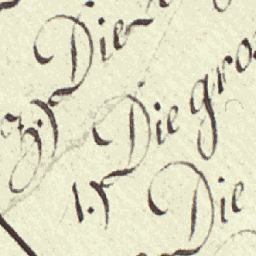 Die
3.) Die gro
1.) Die